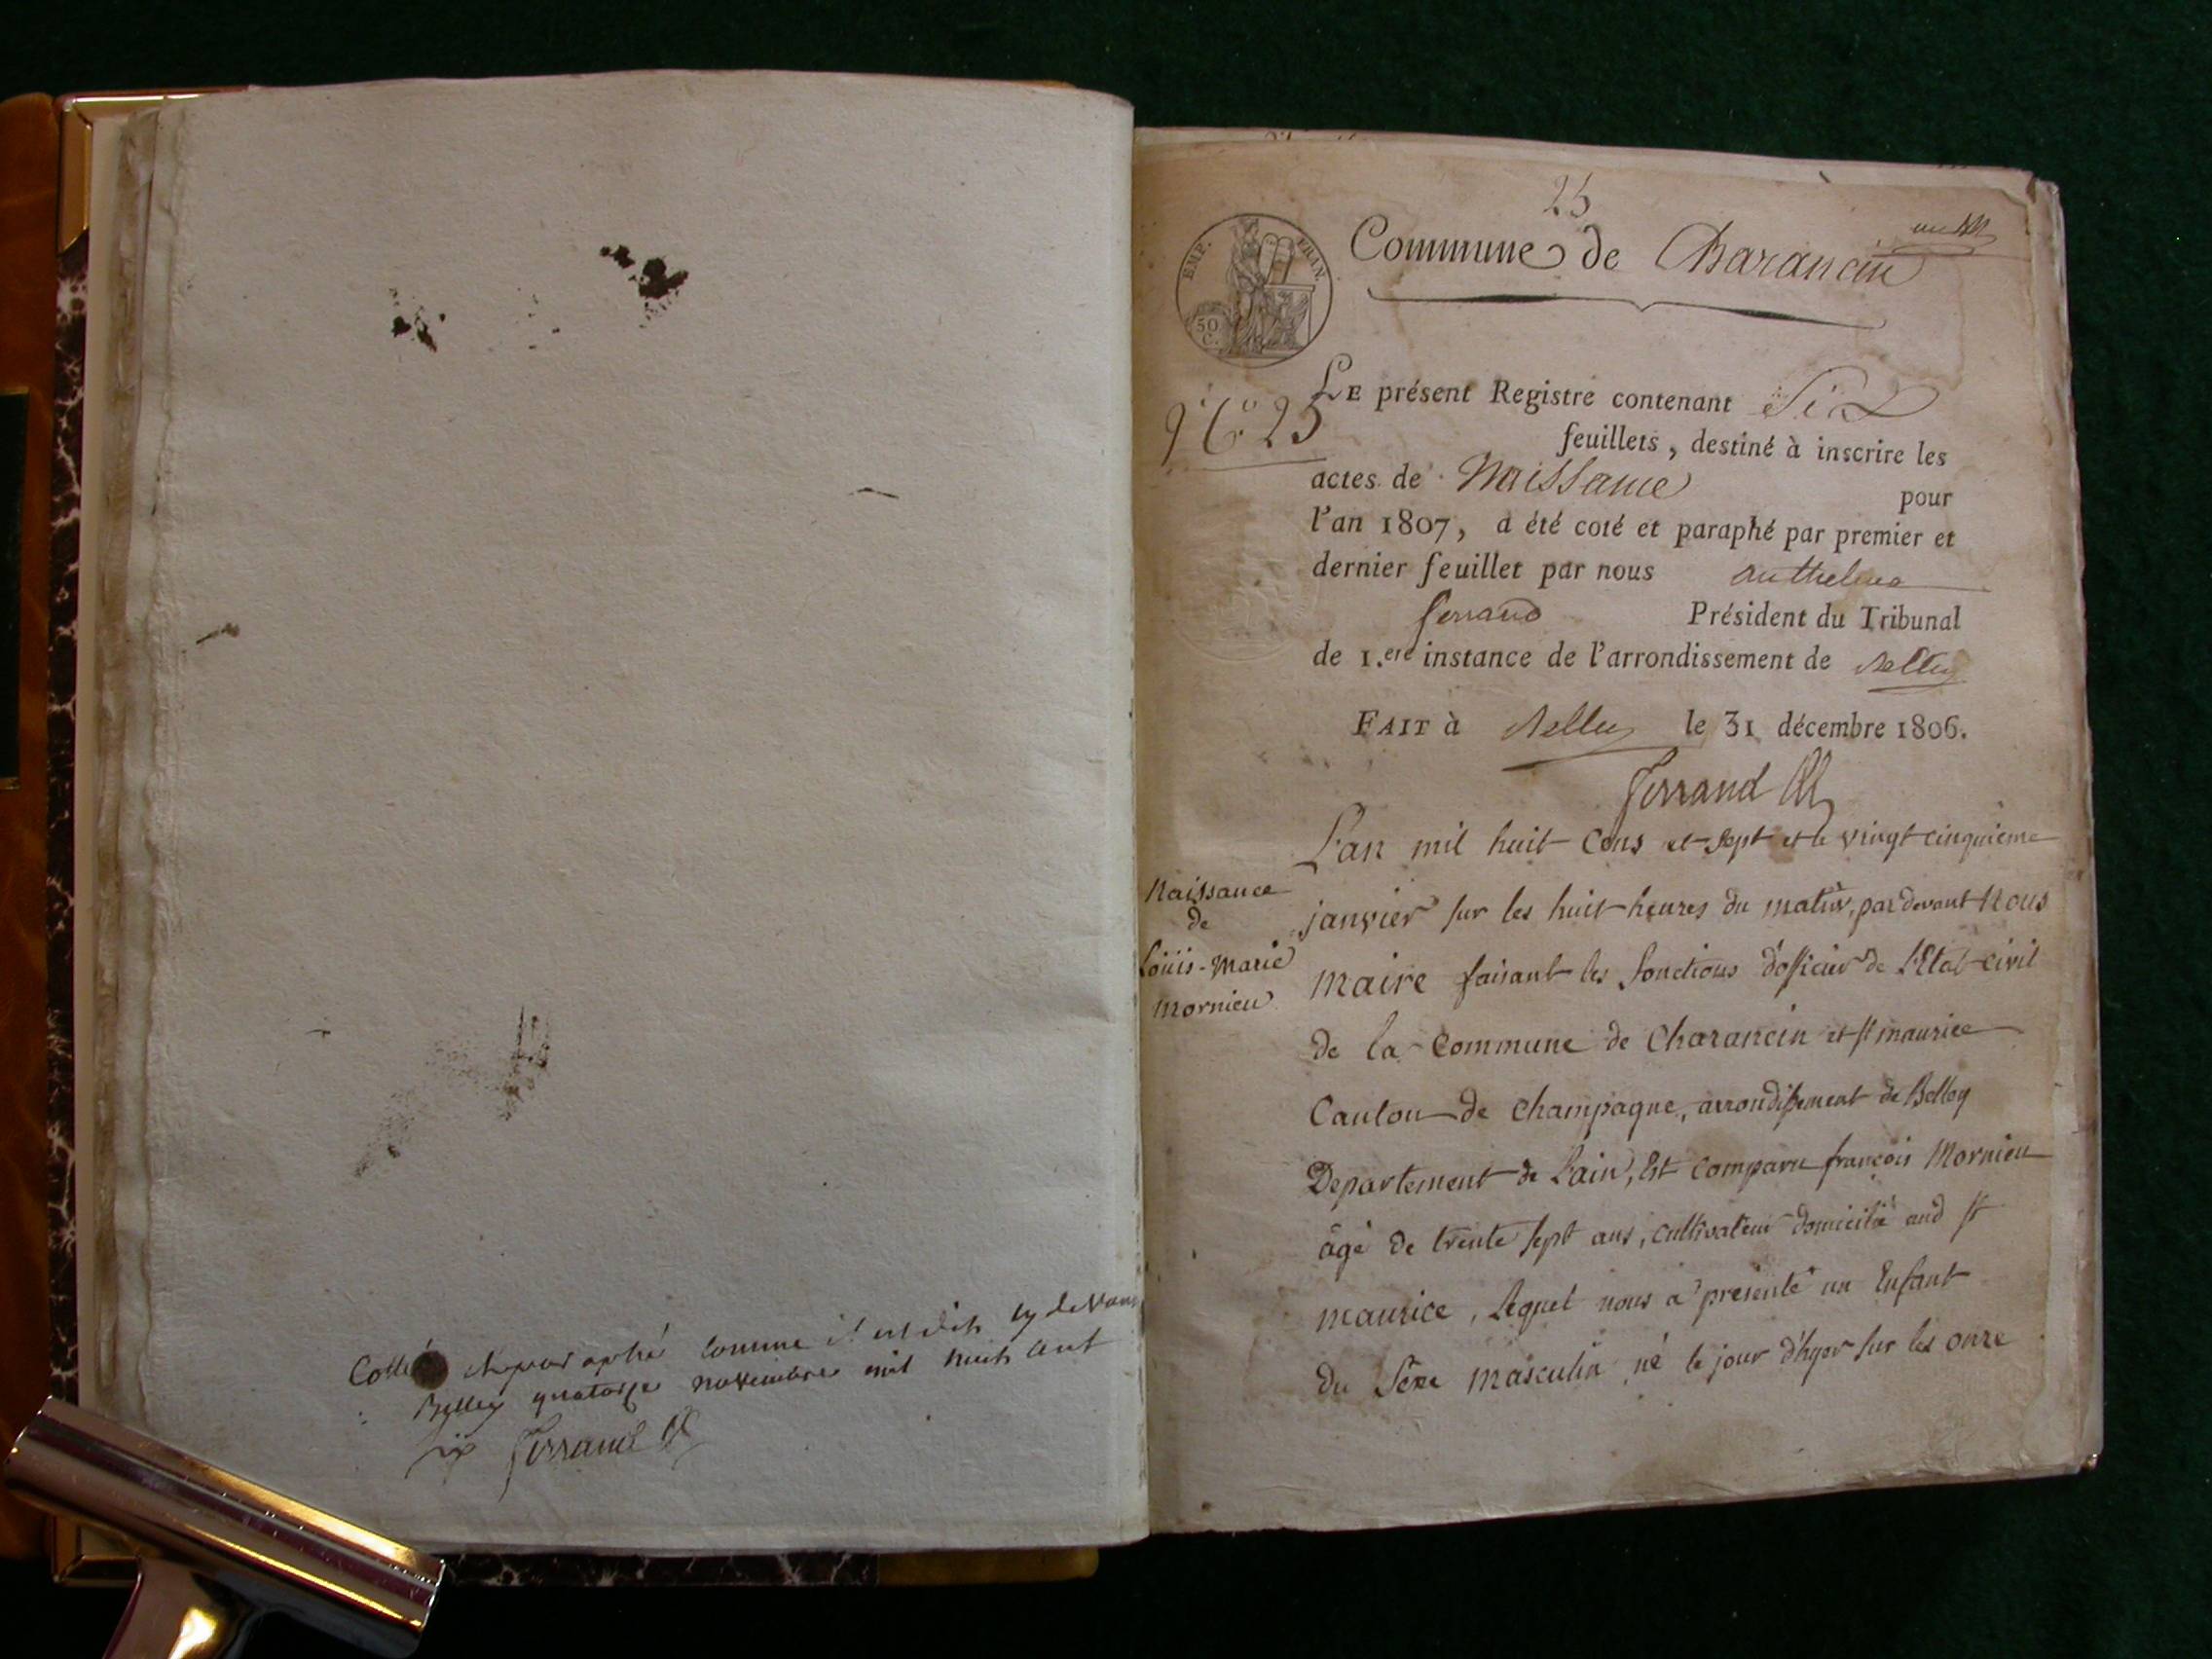 Cotté et paraphé comme il est dit cy devant
Belley quatorze novembre mil huit cent
six Ferrand
25
Commune de Charancin
EMP. FRAN.
50
C.
LE présent Registre contenant Six
25
feuillets, destiné à inscrire les
actes de Naissance pour
l'an 1807, a été coté et paraphé par premier et
dernier feuillet par nous anthelme
ferrand Président du Tribunal
de 1.ere instance de l'arrondissement de Belley
FAIT à Belley le 31 décembre 1806.
Ferrand
Naissance
de
Loüis-Marie
Mornieu
L'an mil huit Cens et sept et le vingt cinquieme
janvier sur les huit heures du matin, par devant Nous
maire faisant les fonctions d'officier de L'Etat civil
de la Commune de Charancin et st maurice
Canton de Champagne, arrondissement de Belley
Departement de L'ain, Est comparu françois Mornieu
âgé de trente sept ans, cultivateur domicilié aud st
maurice, Lequel nous a présenté un Enfant
du Sexe masculin né le jour d'hyer sur les onze